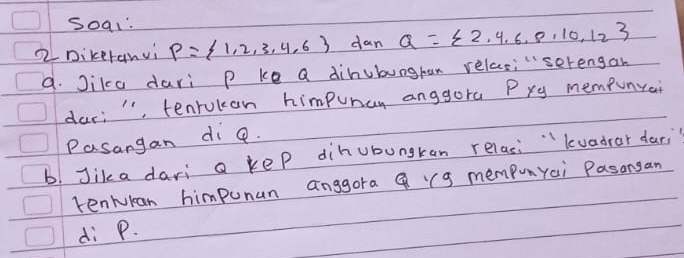 Soal:
2 Diketahui P = {1,2,3,4,6} dan Q = {2,4,6,8,10,12}
a. Jika dari P ke Q dihubungkan relasi "setengah
dari", tentukan himpunan anggota P yg mempunyai
Pasangan di Q.
b. Jika dari Q ke P dihubungkan relasi "kuadrat dari"
tentukan himpunan anggota Q yg mempunyai Pasangan
di P.